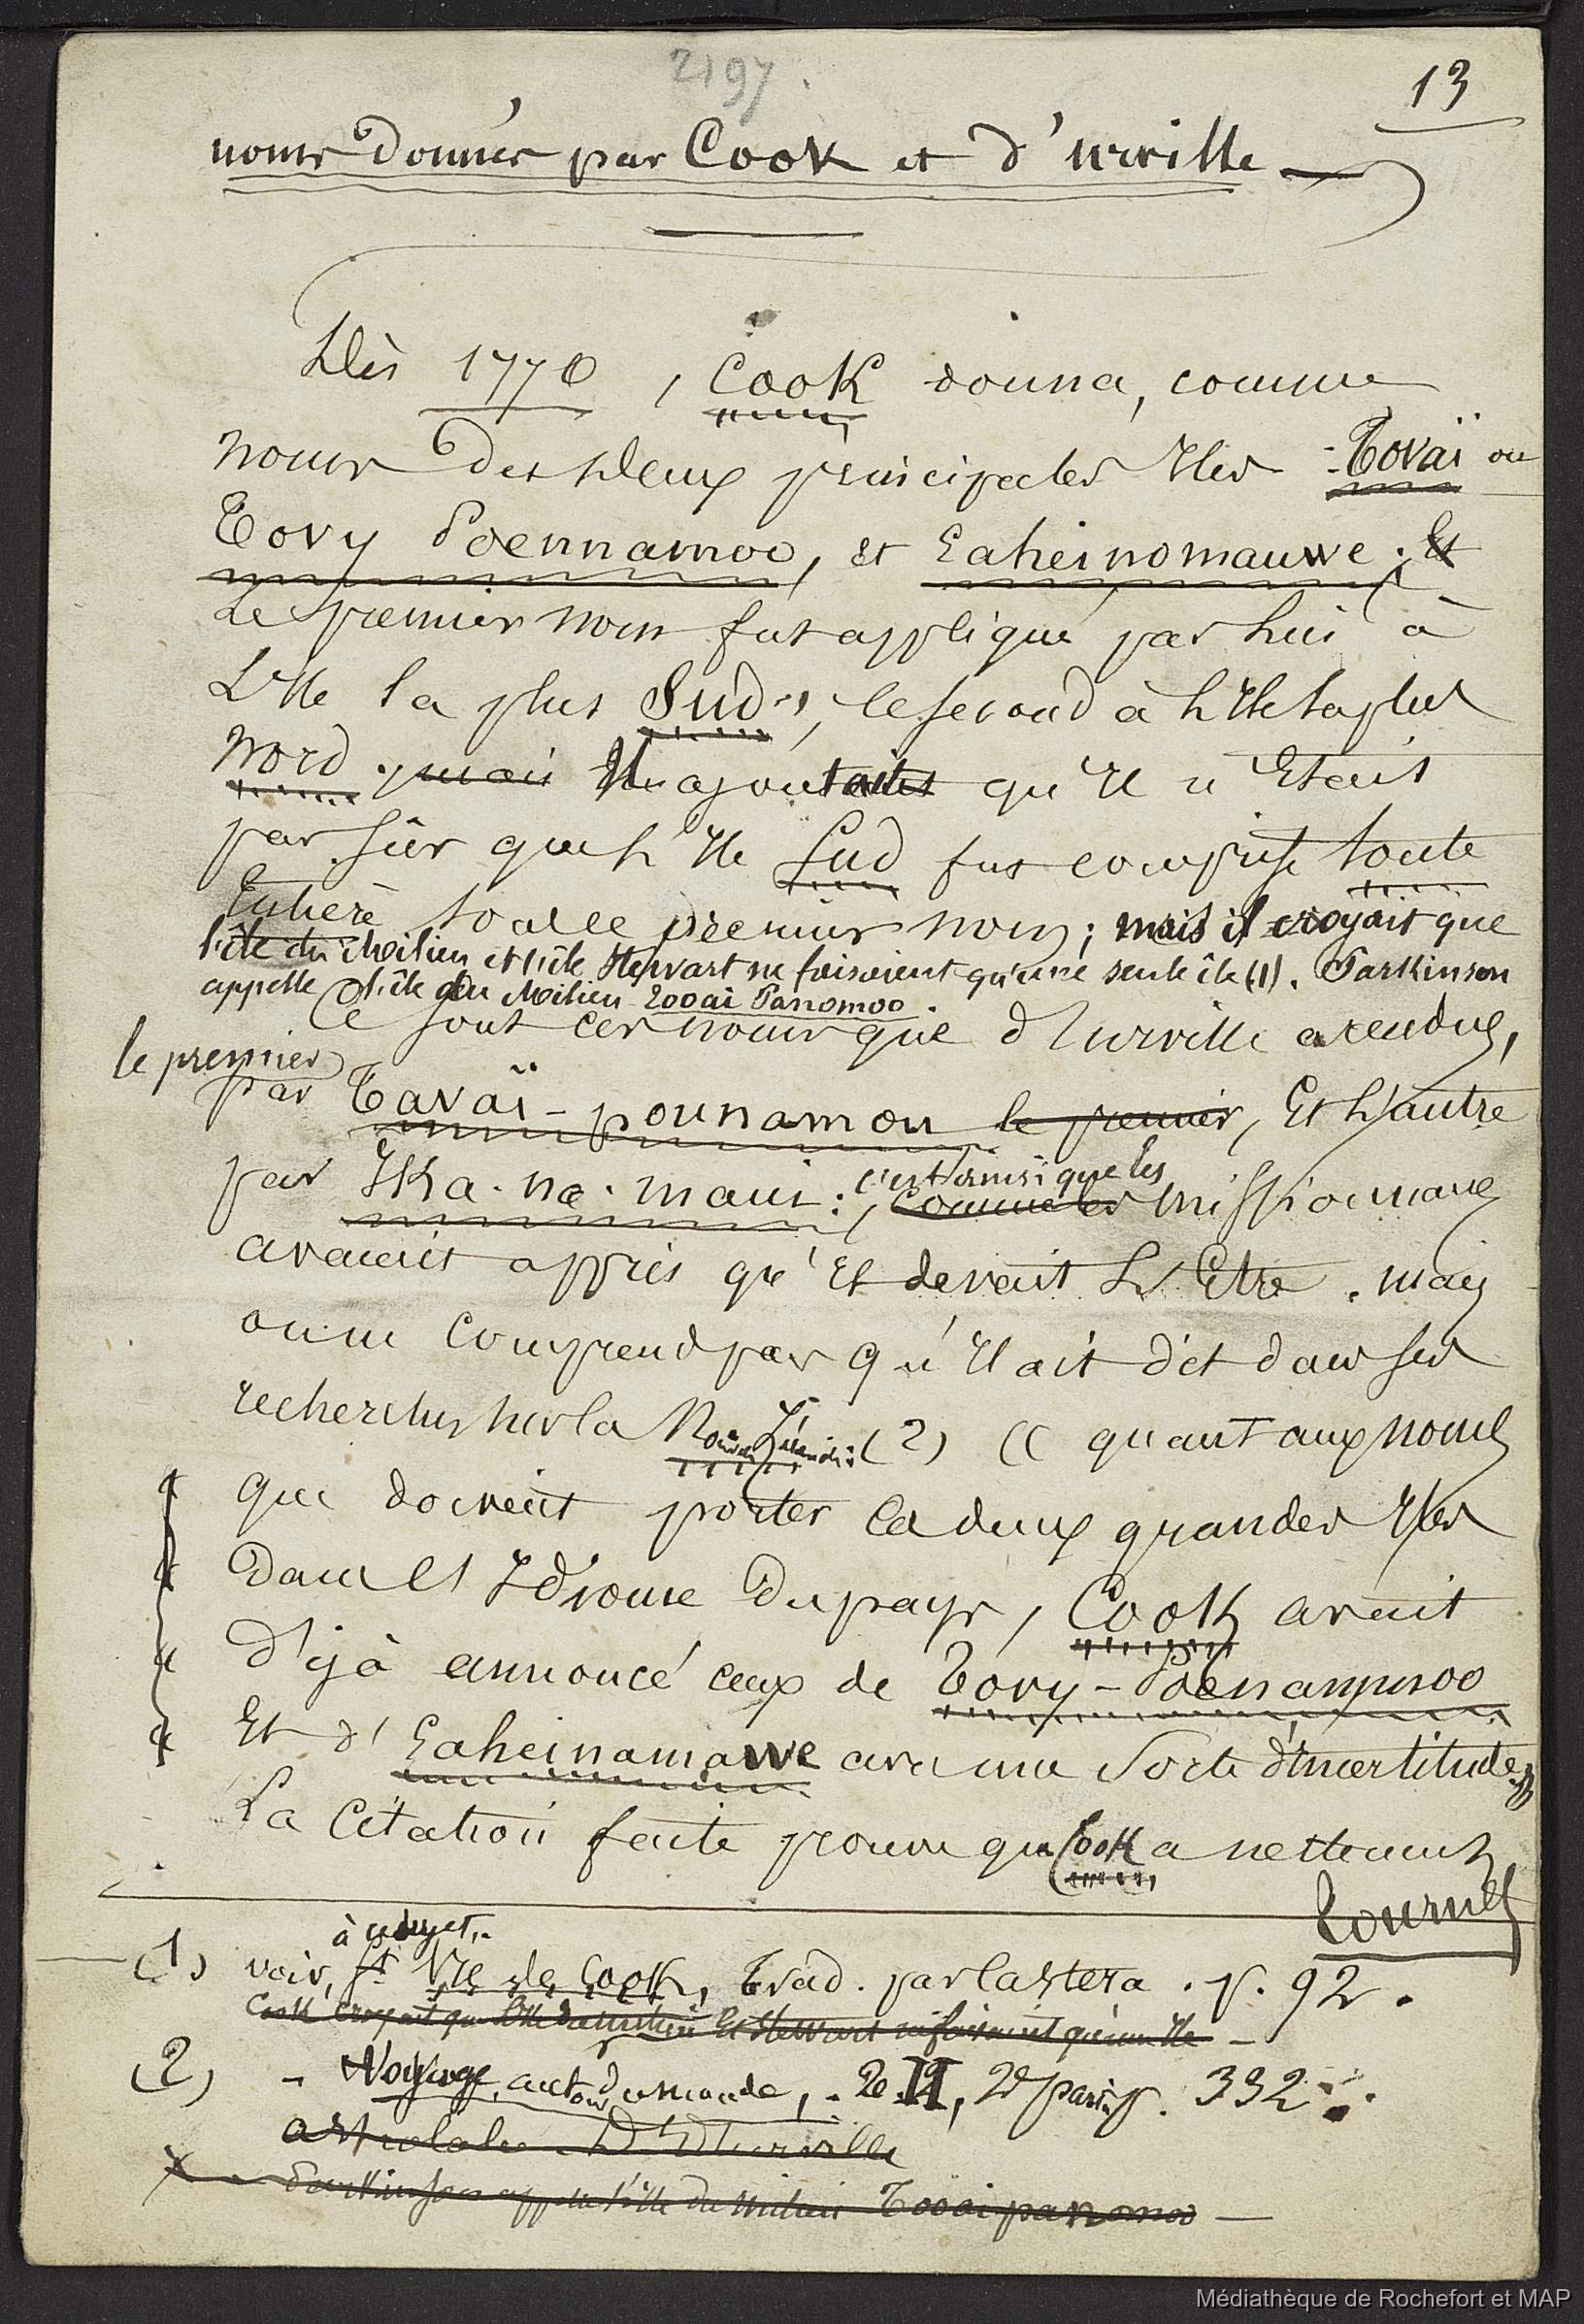 2197.
13
noms donnés par Cook et d'urville
Dès 1770, Cook donna, comme
noms des deux principales Iles : Tovaï ou
Tovy Poennamoo, et Eaheinomauwe ; Et
Le premier nom fut appliqué par lui à
L'Ile la plus Sud, le second à l'Ile la plus
Nord. mais Il ajoutait qu'il n'était
pas sûr que l'Ile Sud fut comprise toute
Entière sous le premier nom ; mais il croyait que
l'île du Milieu et l'île Stewart ne faisaient qu'une seule île (1). Parkinson
appelle l'île du Milieu Tooai Panomoo.
Ce sont ces noms que d'urville a rendus,
le premier
par Tavaï-pounamou le premier, Et l'autre
par Ika-na-maui : c'est ainsi que les
comme les missionnaires
avaient appris qu'Il devait L'Etre. mais
on ne comprend pas qu'Il ait dit dans ses
recherches sur la Nouv. Zélande (2) « quant aux noms
que doivent porter les deux grandes Iles
dans l'Idiome du pays, Cook avait
déjà annoncé ceux de Tovy-Poenammoo
Et d'Eaheinamawe avec une sorte d'Incertitude »
La Citation faite prouve que Cook a nettement
tourné
(1) voir, à ce sujet, 1er Vge de Cook, trad. par Lastera. p. 92.
Cook croyait que l'Ile du milieu Et Stewart ne faisaient qu'une Ile -
(2) - Voyage autour du monde, - 2e II, 2d part. p. 332
astrolabe D'Urville
x - Parkinson appelle l'Ile du Milieu Tooai panomoo -
Médiathèque de Rochefort et MAP